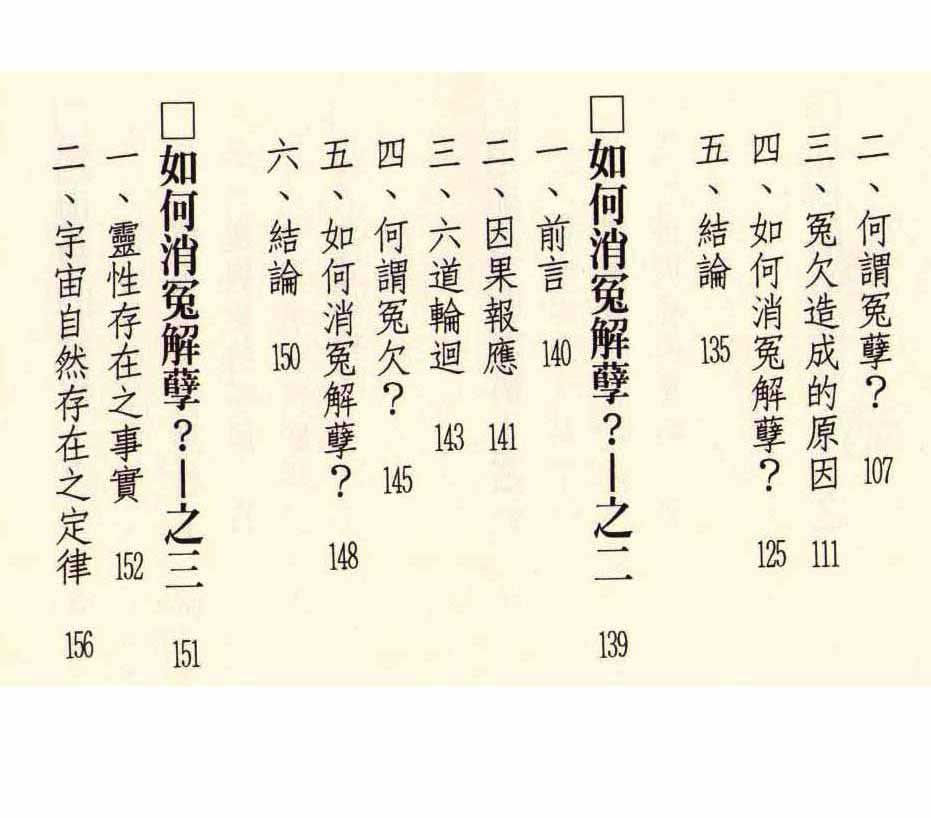 二、何謂冤孽？ 107
三、冤欠造成的原因 111
四、如何消冤解孽？ 125
五、結論 135
□如何消冤解孽？—之二 139
一、前言 140
二、因果報應 141
三、六道輪迴 143
四、何謂冤欠？ 145
五、如何消冤解孽？ 148
六、結論 150
□如何消冤解孽？—之三 151
一、靈性存在之事實 152
二、宇宙自然存在之定律 156